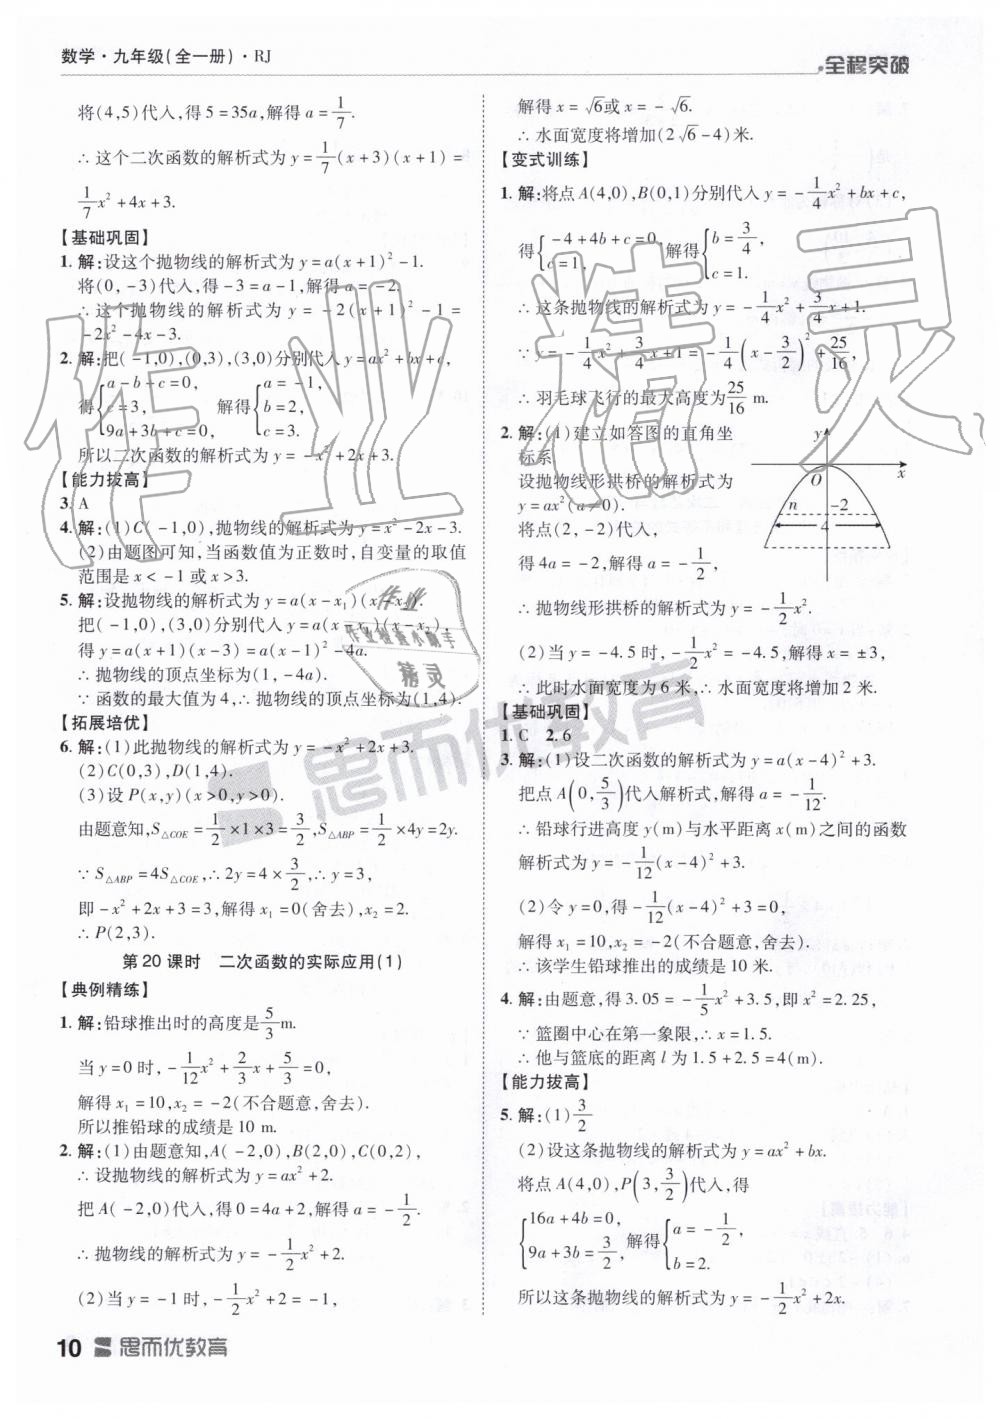 数学·九年级(全一册)·RJ
全程突破
将(4,5)代入,得5=35a,解得a=1/7.
∴这个二次函数的解析式为y=1/7(x+3)(x+1)=
1/7x²+4x+3.
【基础巩固】
1.解:设这个抛物线的解析式为y=a(x+1)²-1.
将(0,-3)代入,得-3=a-1,解得a=-2.
∴这个抛物线的解析式为y=-2(x+1)²-1=
-2x²-4x-3.
2.解:把(-1,0),(0,3),(3,0)分别代入y=ax²+bx+c,
得{a-b+c=0, c=3, 9a+3b+c=0, 解得{a=-1, b=2, c=3.
所以二次函数的解析式为y=-x²+2x+3.
【能力拔高】
3.A
4.解:(1)C(-1,0),抛物线的解析式为y=x²-2x-3.
(2)由题图可知,当函数值为正数时,自变量的取值
范围是x<-1或x>3.
5.解:设抛物线的解析式为y=a(x-x₁)(x-x₂).
把(-1,0),(3,0)分别代入y=a(x-x₁)(x-x₂),
得y=a(x+1)(x-3)=a(x-1)²-4a.
∴抛物线的顶点坐标为(1,-4a).
∵函数的最大值为4,∴抛物线的顶点坐标为(1,4).
【拓展培优】
6.解:(1)此抛物线的解析式为y=-x²+2x+3.
(2)C(0,3),D(1,4).
(3)设P(x,y)(x>0,y>0).
由题意知,S△COE=1/2×1×3=3/2,S△ABP=1/2×4y=2y.
∵S△ABP=4S△COE,∴2y=4×3/2,∴y=3,
即-x²+2x+3=3,解得x₁=0(舍去),x₂=2.
∴P(2,3).
第20课时 二次函数的实际应用(1)
【典例精练】
1.解:铅球推出时的高度是5/3m.
当y=0时,-1/12x²+2/3x+5/3=0,
解得x₁=10,x₂=-2(不合题意,舍去).
所以推铅球的成绩是10 m.
2.解:(1)由题意知,A(-2,0),B(2,0),C(0,2),
∴设抛物线的解析式为y=ax²+2.
把A(-2,0)代入,得0=4a+2,解得a=-1/2.
∴抛物线的解析式为y=-1/2x²+2.
(2)当y=-1时,-1/2x²+2=-1,
解得x=√6或x=-√6.
∴水面宽度将增加(2√6-4)米.
【变式训练】
1.解:将点A(4,0),B(0,1)分别代入y=-1/4x²+bx+c,
得{-4+4b+c=0, c=1, 解得{b=3/4, c=1.
∴这条抛物线的解析式为y=-1/4x²+3/4x+1.
∵y=-1/4x²+3/4x+1=-1/4(x-3/2)²+25/16,
∴羽毛球飞行的最大高度为25/16 m.
2.解:(1)建立如答图的直角坐
标系
设抛物线形拱桥的解析式为
y=ax²(a≠0).
将点(2,-2)代入,
得4a=-2,解得a=-1/2,
y
O
x
n
-2
4
∴抛物线形拱桥的解析式为y=-1/2x².
(2)当y=-4.5时,-1/2x²=-4.5,解得x=±3,
∴此时水面宽度为6米,∴水面宽度将增加2米.
【基础巩固】
1.C 2.6
3.解:(1)设二次函数的解析式为y=a(x-4)²+3.
把点A(0,5/3)代入解析式,解得a=-1/12.
∴铅球行进高度y(m)与水平距离x(m)之间的函数
解析式为y=-1/12(x-4)²+3.
(2)令y=0,得-1/12(x-4)²+3=0,
解得x₁=10,x₂=-2(不合题意,舍去).
∴该学生铅球推出的成绩是10米.
4.解:由题意,得3.05=-1/5x²+3.5,即x²=2.25,
∵篮圈中心在第一象限,∴x=1.5.
∴他与篮底的距离l为1.5+2.5=4(m).
【能力拔高】
5.解:(1)3/2
(2)设这条抛物线的解析式为y=ax²+bx.
将点A(4,0),P(3,3/2)代入,得
{16a+4b=0, 9a+3b=3/2, 解得{a=-1/2, b=2.
所以这条抛物线的解析式为y=-1/2x²+2x.
10 思而优教育
思而优教育
作业精灵
作业
作业检查小助手
精灵